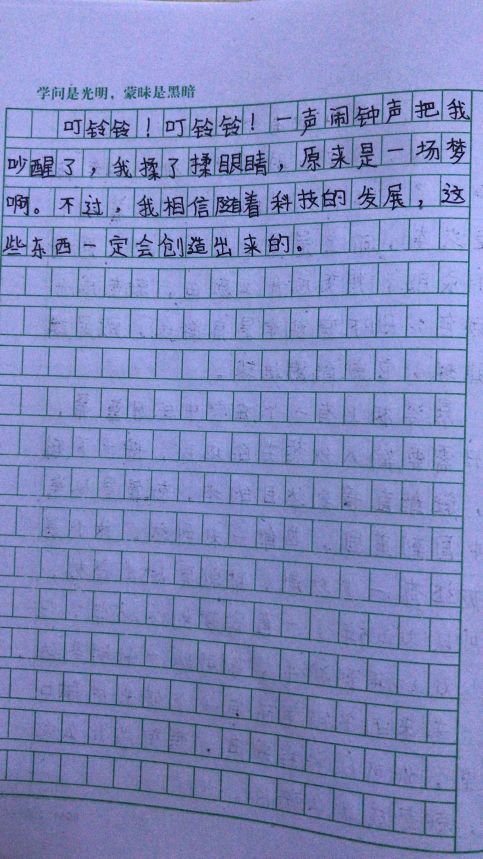 学问是光明，蒙昧是黑暗
叮铃铃！叮铃铃！一声闹钟声把我
吵醒了，我揉了揉眼睛，原来是一场梦
啊。不过，我相信随着科技的发展，这
些东西一定会创造出来的。